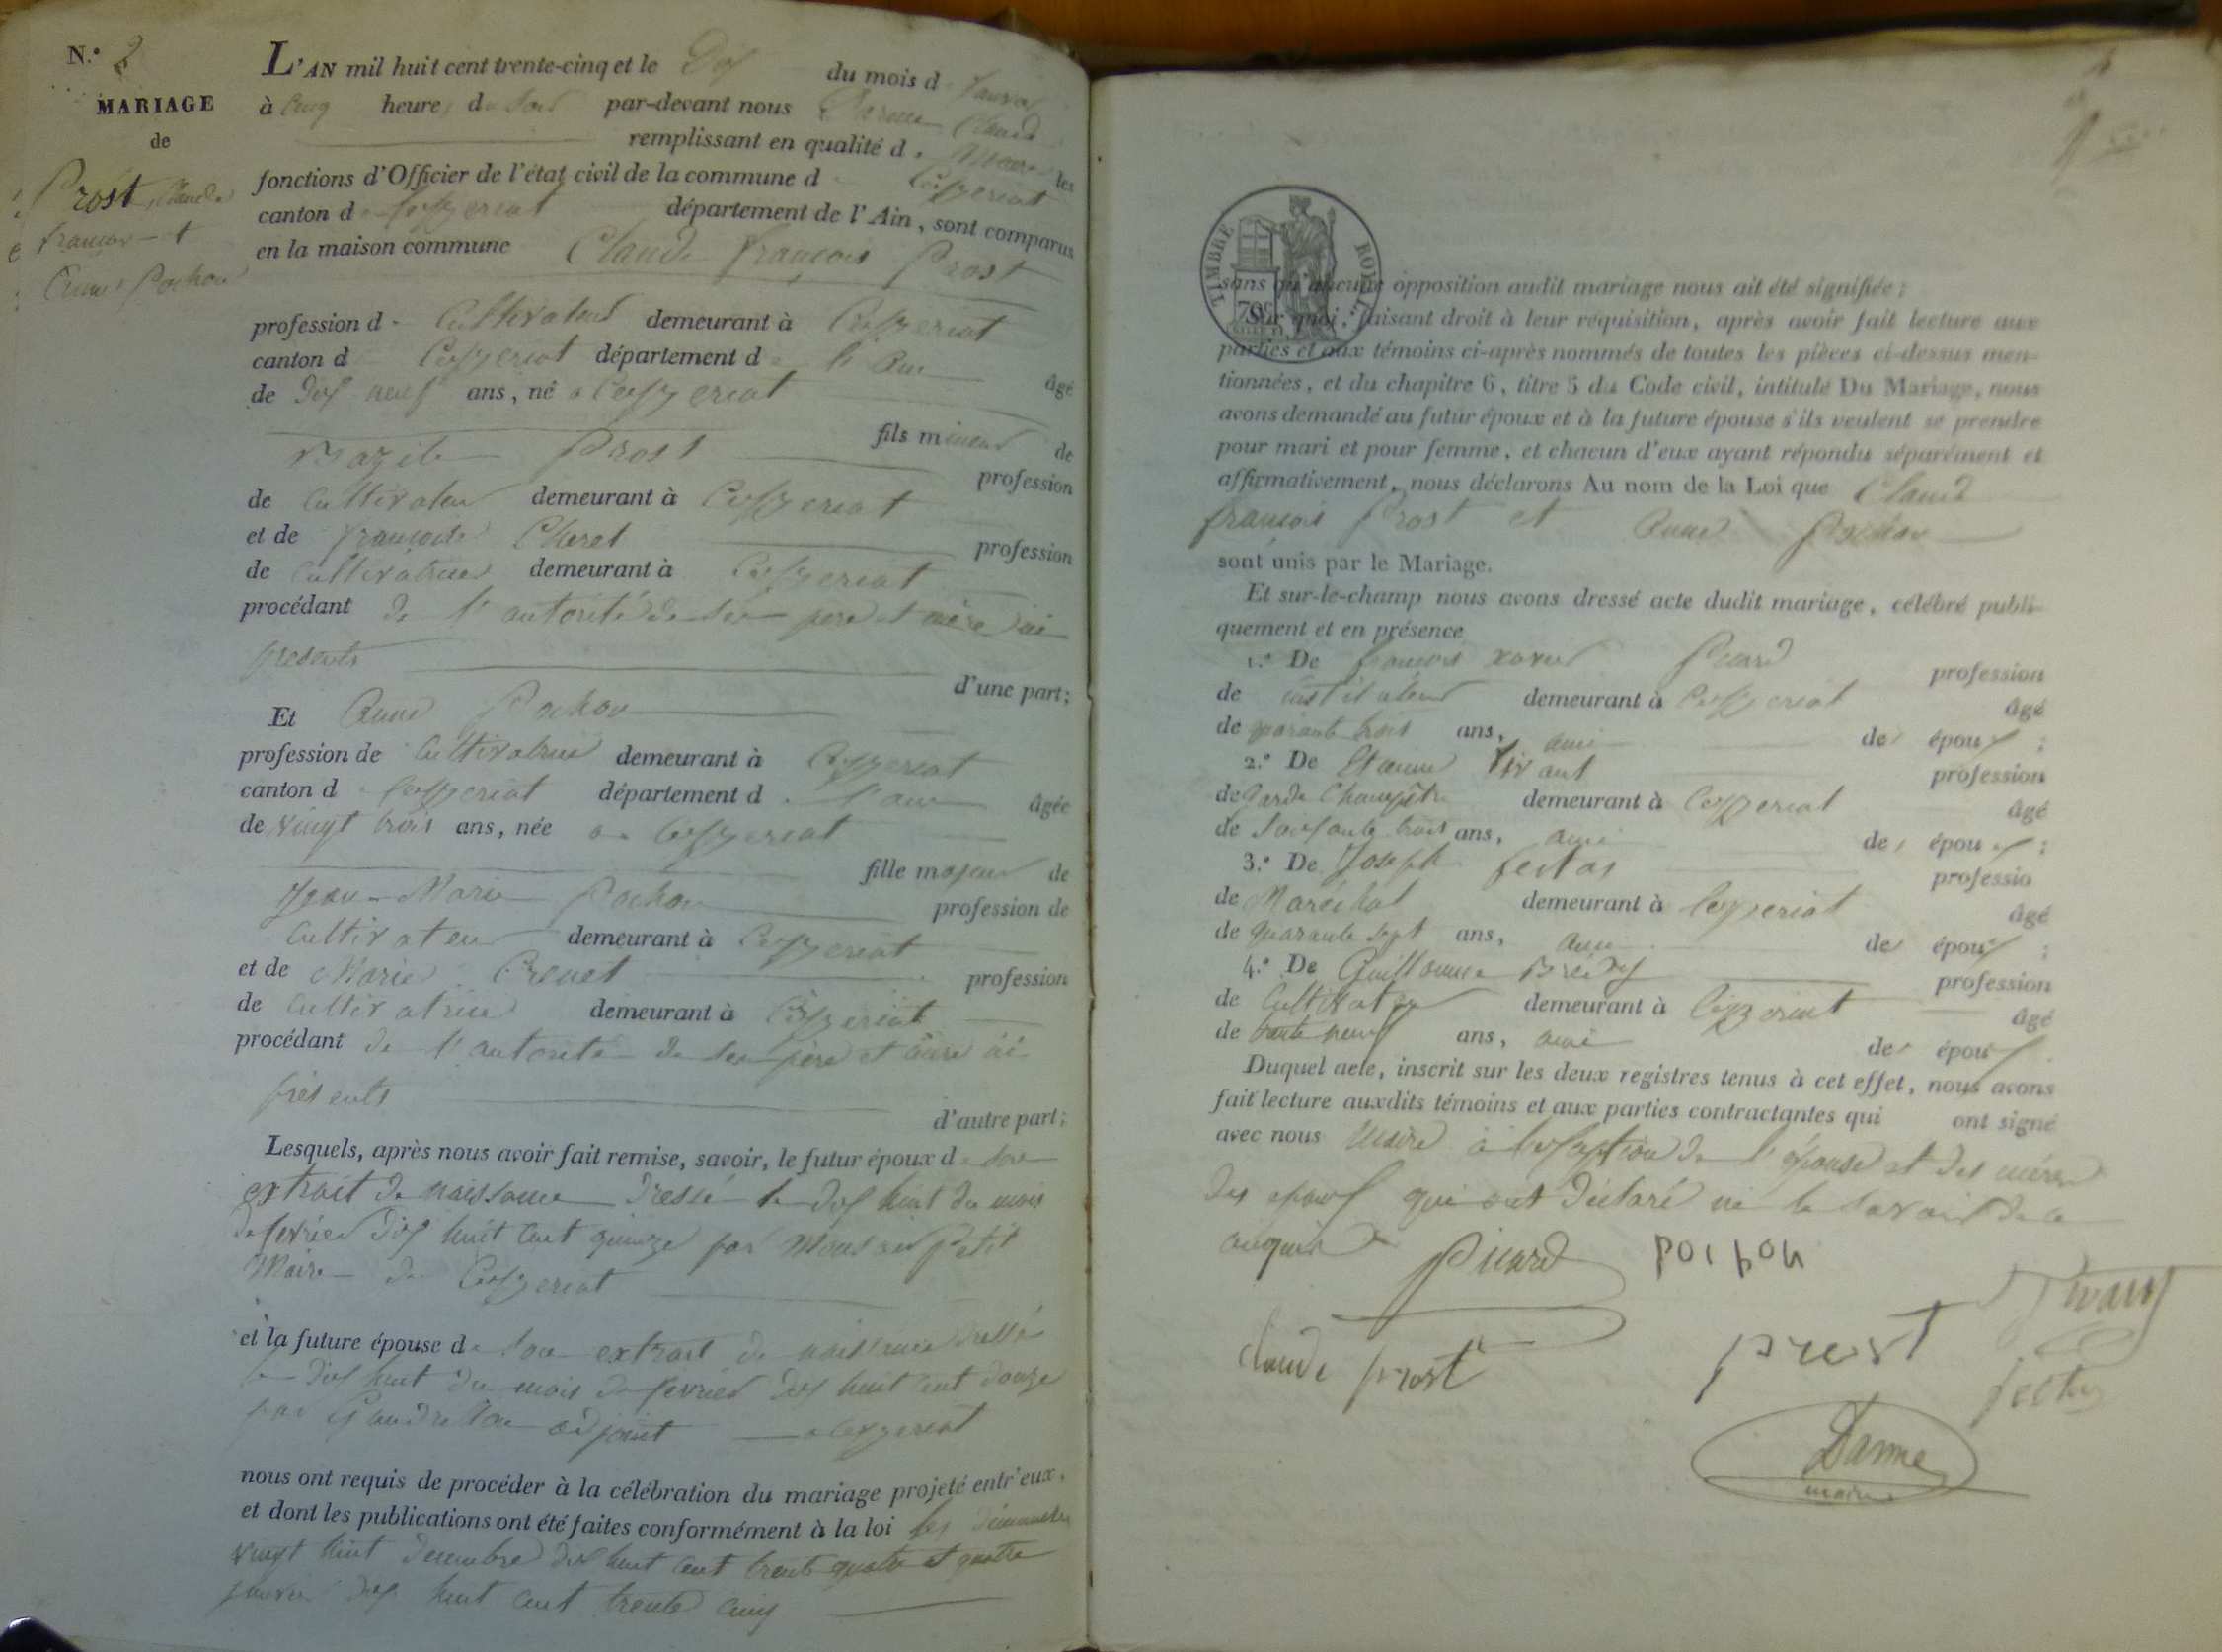 N.º 2
MARIAGE
de
Prost Claude
françois et
Anne Pochon
L'AN mil huit cent trente-cinq et le Dix du mois d Janvier
à Cinq heures du Soir par-devant nous Darme Claude
remplissant en qualité de Maire les
fonctions d'Officier de l'état civil de la commune d Ceyzeriat
canton de Ceyzeriat département de l'Ain, sont comparus
en la maison commune Claude françois Prost
profession de Cultivateur demeurant à Ceyzeriat
canton d Ceyzeriat département de l'Ain âgé
de Dix neuf ans, né a Ceyzeriat
fils mineur de
Bazile Prost profession
de Cultivateur demeurant à Ceyzeriat
et de françoise Cheret profession
de Cultivatrice demeurant à Ceyzeriat
procédant de l'autorité de ses pere et mère ici
présents
d'une part;
Et Anne Pochon
profession de Cultivatrice demeurant à Ceyzeriat
canton d Ceyzeriat département d l'ain âgée
de vingt trois ans, née a Ceyzeriat
fille majeur de
Jean-Marie Pochon profession de
Cultivateur demeurant à Ceyzeriat
et de Marie Crevet profession
de Cultivatrice demeurant à Ceyzeriat
procédant de l'autorité de ses père et mère ici
présents
d'autre part;
Lesquels, après nous avoir fait remise, savoir, le futur époux de son
extrait de naissance dressé le dix huit du mois
de fevrier dix huit cent quinze par Petit
Maire de Ceyzeriat
et la future épouse de son extrait de naissance dressé
le dix huit du mois de fevrier dix huit cent douze
par adjoint a Ceyzeriat
nous ont requis de procéder à la célébration du mariage projeté entr'eux,
et dont les publications ont été faites conformément à la loi les dimanches
vingt huit decembre dix huit cent trente quatre et quatre
janvier dix huit cent trente cinq
TIMBRE ROYAL
70c
sans qu'aucune opposition audit mariage nous ait été signifiée;
Sur quoi, faisant droit à leur réquisition, après avoir fait lecture aux
parties et aux témoins ci-après nommés de toutes les pièces ci-dessus men-
tionnées, et du chapitre 6, titre 5 du Code civil, intitulé Du Mariage, nous
avons demandé au futur époux et à la future épouse s'ils veulent se prendre
pour mari et pour femme, et chacun d'eux ayant répondu séparément et
affirmativement, nous déclarons Au nom de la Loi que Claude
françois Prost et Anne Pochon
sont unis par le Mariage.
Et sur-le-champ nous avons dressé acte dudit mariage, célébré publi-
quement et en présence
1.º De françois xavier Picard profession
de demeurant à Ceyzeriat âgé
de quarante trois ans, ami des époux;
2.º De Etienne Tivant profession
de garde Champêtre demeurant à Ceyzeriat âgé
de Soixante trois ans, ami des époux;
3.º De Joseph fectas professio
de Maréchal demeurant à Ceyzeriat âgé
de quarante sept ans, ami des époux;
4.º De Guillaume profession
de Cultivateur demeurant à Ceyzeriat âgé
de trente neuf ans, ami des époux
Duquel acte, inscrit sur les deux registres tenus à cet effet, nous avons
fait lecture auxdits témoins et aux parties contractantes qui ont signé
avec nous Maire à l'exception de l'épouse et des mères
des epoux qui ont déclaré ne le savoir de ce
enquis
Picard pochon
Tivant
claude prost prost
fectas
Darme
maire